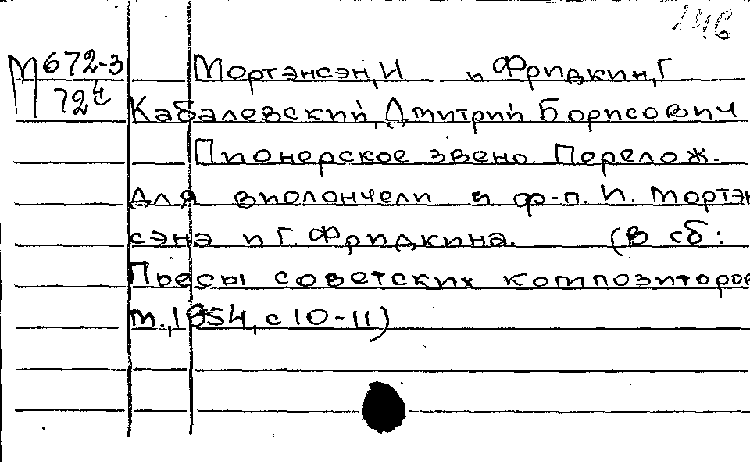 М672-3 Мортэнсэн, И и Фридкин, Г
72ч Кабалевский, Дмитрий Борисович
Пионерское звено Перелож.
для виолончели и ф-п. И. Мортэн
сэна и Г. Фридкина. (В сб:
Пьесы советских композиторов
т., 1954, с 10-11)